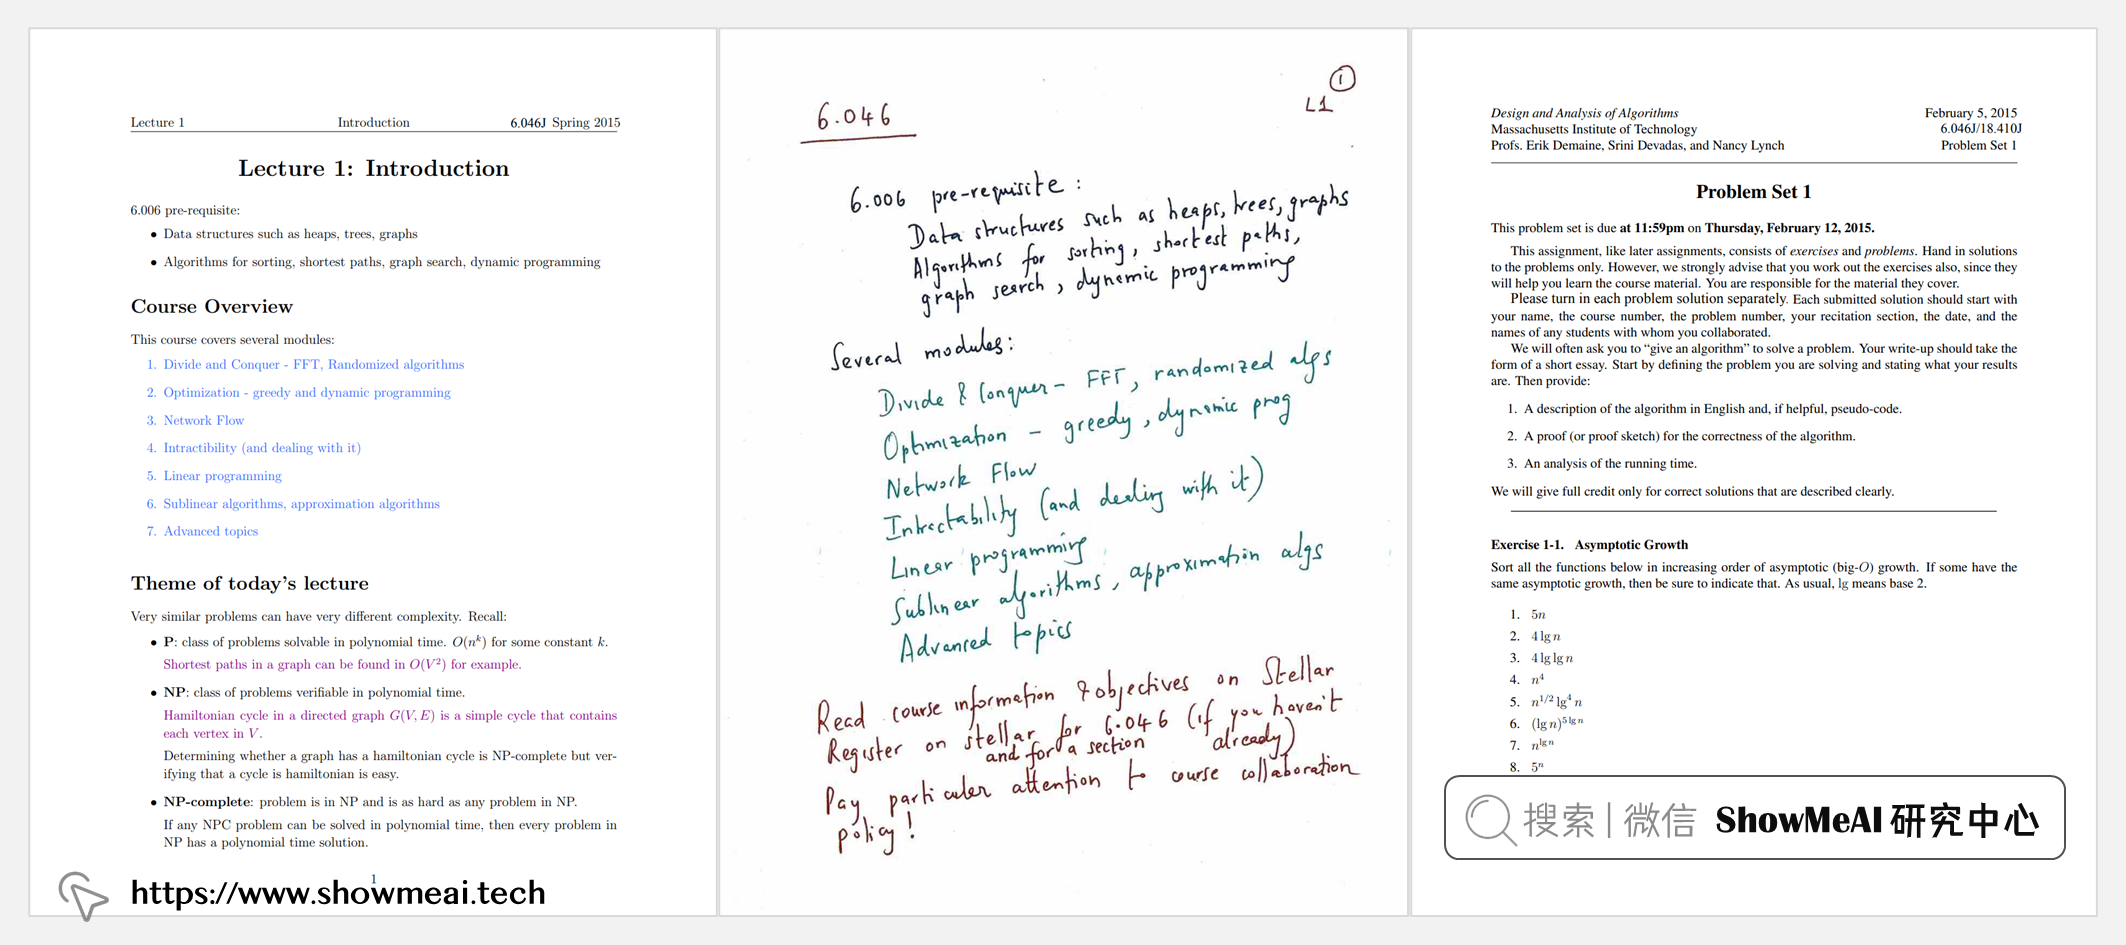 Lecture 1 Introduction 6.046J Spring 2015
Lecture 1: Introduction
6.006 pre-requisite:
• Data structures such as heaps, trees, graphs
• Algorithms for sorting, shortest paths, graph search, dynamic programming
Course Overview
This course covers several modules:
1. Divide and Conquer - FFT, Randomized algorithms
2. Optimization - greedy and dynamic programming
3. Network Flow
4. Intractibility (and dealing with it)
5. Linear programming
6. Sublinear algorithms, approximation algorithms
7. Advanced topics
Theme of today's lecture
Very similar problems can have very different complexity. Recall:
• P: class of problems solvable in polynomial time. O(n^k) for some constant k.
Shortest paths in a graph can be found in O(V²) for example.
• NP: class of problems verifiable in polynomial time.
Hamiltonian cycle in a directed graph G(V, E) is a simple cycle that contains
each vertex in V.
Determining whether a graph has a hamiltonian cycle is NP-complete but ver-
ifying that a cycle is hamiltonian is easy.
• NP-complete: problem is in NP and is as hard as any problem in NP.
If any NPC problem can be solved in polynomial time, then every problem in
NP has a polynomial time solution.
1
https://www.showmeai.tech
①
L1
6.046
6.006 pre-requisite:
Data structures such as heaps, trees, graphs
Algorithms for sorting, shortest paths,
graph search, dynamic programming
Several modules:
Divide & Conquer - FFT, randomized algs
Optimization - greedy, dynamic prog
Network Flow
Intractability (and dealing with it)
Linear programming
Sublinear algorithms, approximation algs
Advanced topics
Read course information & objectives on Stellar
Register on stellar for 6.046 (if you haven't
and for a section already)
Pay particular attention to course collaboration
policy!
Design and Analysis of Algorithms February 5, 2015
Massachusetts Institute of Technology 6.046J/18.410J
Profs. Erik Demaine, Srini Devadas, and Nancy Lynch Problem Set 1
Problem Set 1
This problem set is due at 11:59pm on Thursday, February 12, 2015.
This assignment, like later assignments, consists of exercises and problems. Hand in solutions
to the problems only. However, we strongly advise that you work out the exercises also, since they
will help you learn the course material. You are responsible for the material they cover.
Please turn in each problem solution separately. Each submitted solution should start with
your name, the course number, the problem number, your recitation section, the date, and the
names of any students with whom you collaborated.
We will often ask you to “give an algorithm” to solve a problem. Your write-up should take the
form of a short essay. Start by defining the problem you are solving and stating what your results
are. Then provide:
1. A description of the algorithm in English and, if helpful, pseudo-code.
2. A proof (or proof sketch) for the correctness of the algorithm.
3. An analysis of the running time.
We will give full credit only for correct solutions that are described clearly.
Exercise 1-1. Asymptotic Growth
Sort all the functions below in increasing order of asymptotic (big-O) growth. If some have the
same asymptotic growth, then be sure to indicate that. As usual, lg means base 2.
1. 5n
2. 4 lg n
3. 4 lg lg n
4. n⁴
5. n^{1/2} lg⁴ n
6. (lg n)^{5 lg n}
7. n^{lg n}
8. 5ⁿ
搜索 | 微信 ShowMeAI 研究中心